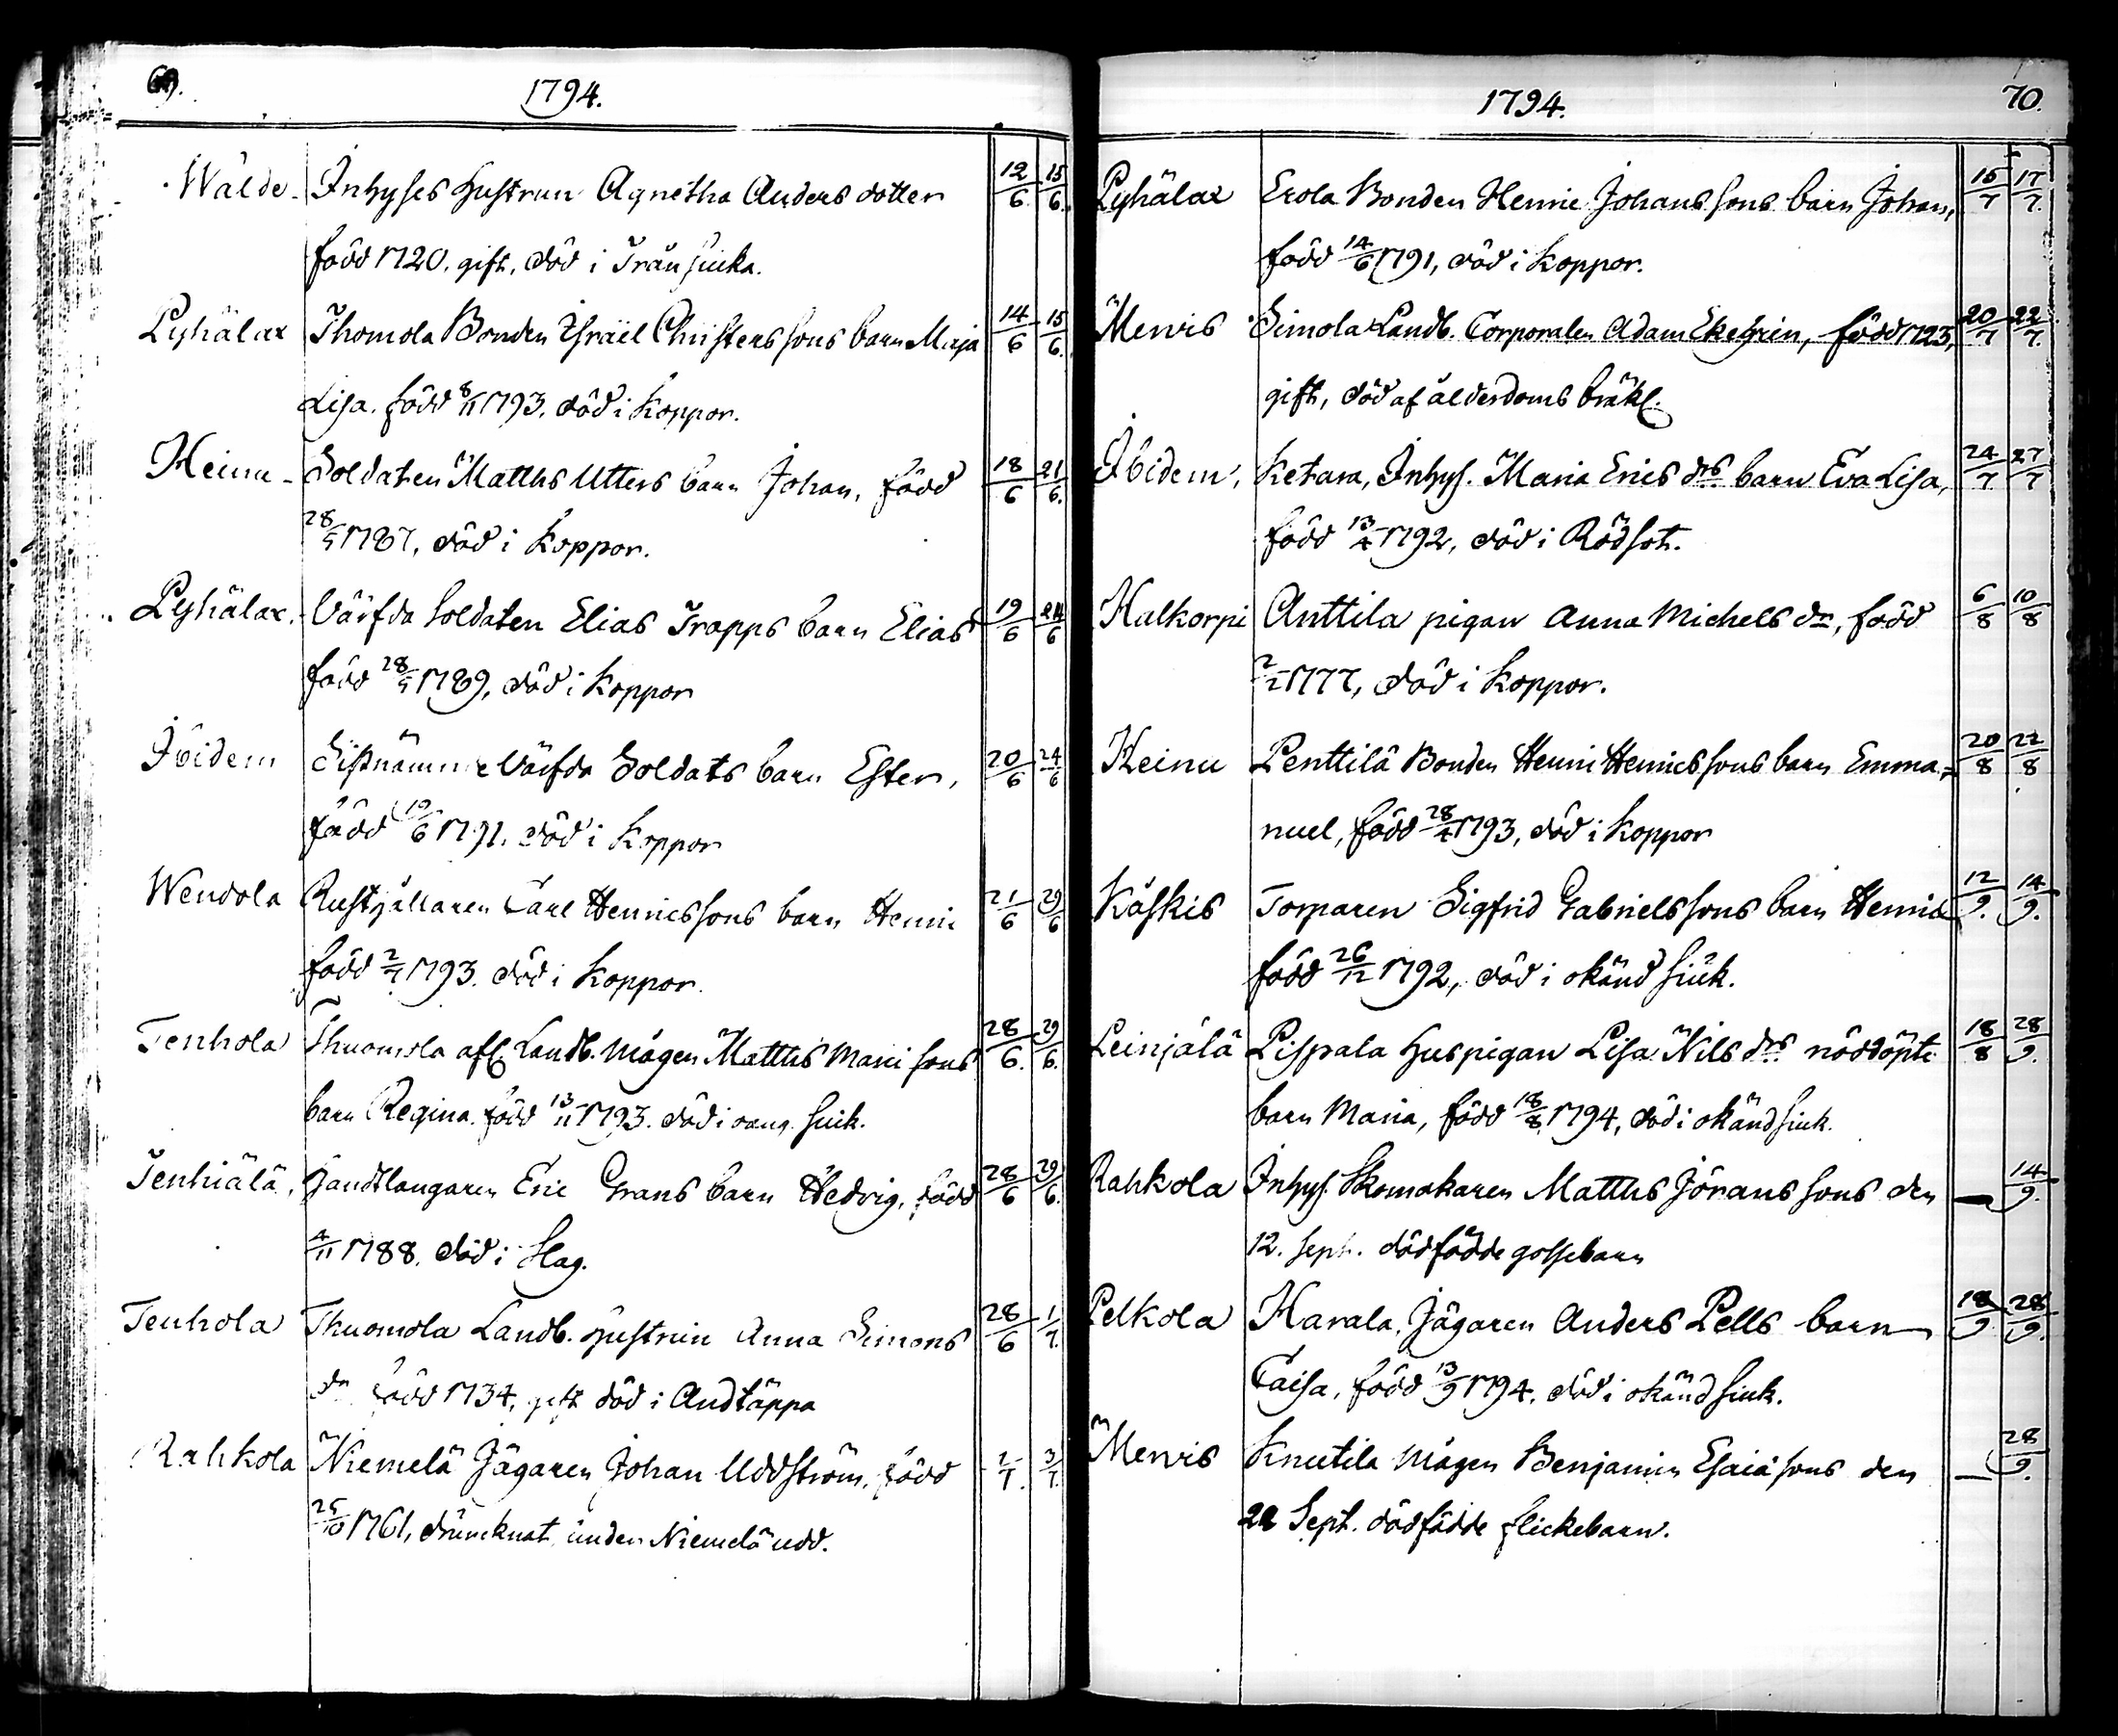 69.
1794.
Wälde. Inhyses Hustrun Agnetha Anders dotter 12/6 15/6.
född 1720. gift, död i Trånsiuka.
Pyhälax Thomola Bonden Israël Christerssons barn Maja 14/6 15/6.
Lisa. född 8/11 1793. död i Koppor.
Heinu Soldaten Matths Utters barn Johan, född 18/6 21/6.
28/5 1787, död i Koppor.
Pyhälax. Värfda Soldaten Elias Trapps barn Elias 19/6 24/6
född 28/5 1789, död i Koppor
Ibidem Sistnämnde Värfda Soldats barn Ester, 20/6 24/6
född 19/6 1791. död i Koppor
Wendola Rusthållaren Carl Henricssons barn Henric 21/6 29/6
född 2/7 1793. död i Koppor.
Tenhola Thuomola afl. Landb. Mågen Matths Mari sons 28/6. 29/6.
barn Regina. född 13/11 1793. död i siuk.
Tenhiälä, Handtlangaren Eric Grans barn Hedvig, född 28/6 29/6.
4/11 1788. död i Slag.
Tenhola Thuomola Landb. Hustrun Anna Simons 28/6 1/7.
dr född 1734, gift död i Andtäppa
Rahkola Niemelä Jägaren Johan Uddström, född 2/7. 3/7.
25/10 1761, druncknat under Niemelä udd.
1794.
70.
Pyhälax Erola Bonden Henric Johanssons barn Johan, 15/7 17/7.
född 14/6 1791, död i Koppor.
Mervis Simola Landb. Corporalen Adam Ekegrén, född 1723, 20/7 22/7.
gift, död af ålderdoms bräkl.
Ibidem, Ketara, Inhys. Maria Erics drs barn Eva Lisa, 24/7. 27/7
född 13/4 1792, död i Rödsot.
Halkorpi Anttila pigan Anna Michels dr, född 6/8 10/8
2/2 1777, död i Koppor.
Heinu Penttilä Bonden Henric Henricssons barn Emma= 20/8 22/8
nuel, född 28/4 1793, död i Koppor
Käskis Torparen Sigfrid Gabrielssons barn Henric 12/9. 14/9.
född 26/12 1792, död i okänd siuk.
Leinjälä Pispala Huspigan Lisa Nils drs nöddöpte 18/8 28/9.
barn Maria, född 18/8 1794, död i okänd siuk.
Rahkola Inhys. Skomakaren Matths Jöranssons den — 14/9.
12. Sept. dödfödde gossebarn
Pelkola Harala, Jägaren Anders Pells barn 18/9. 28/9.
Caisa, född 13/9 1794. död i okänd siuk.
Mervis Knutila Mågen Benjamin Esaiæsons den — 28/9.
22 Sept. dödfödde flickebarn.